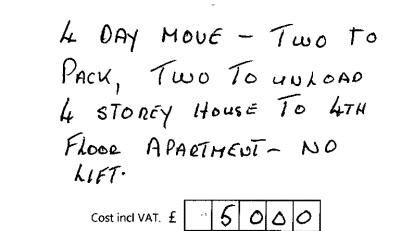 4 DAY MOVE - TWO TO
PACK, TWO TO UNLOAD
4 STOREY HOUSE TO 4TH
FLOOR APARTMENT - NO
LIFT.
Cost incl VAT. £ 5000